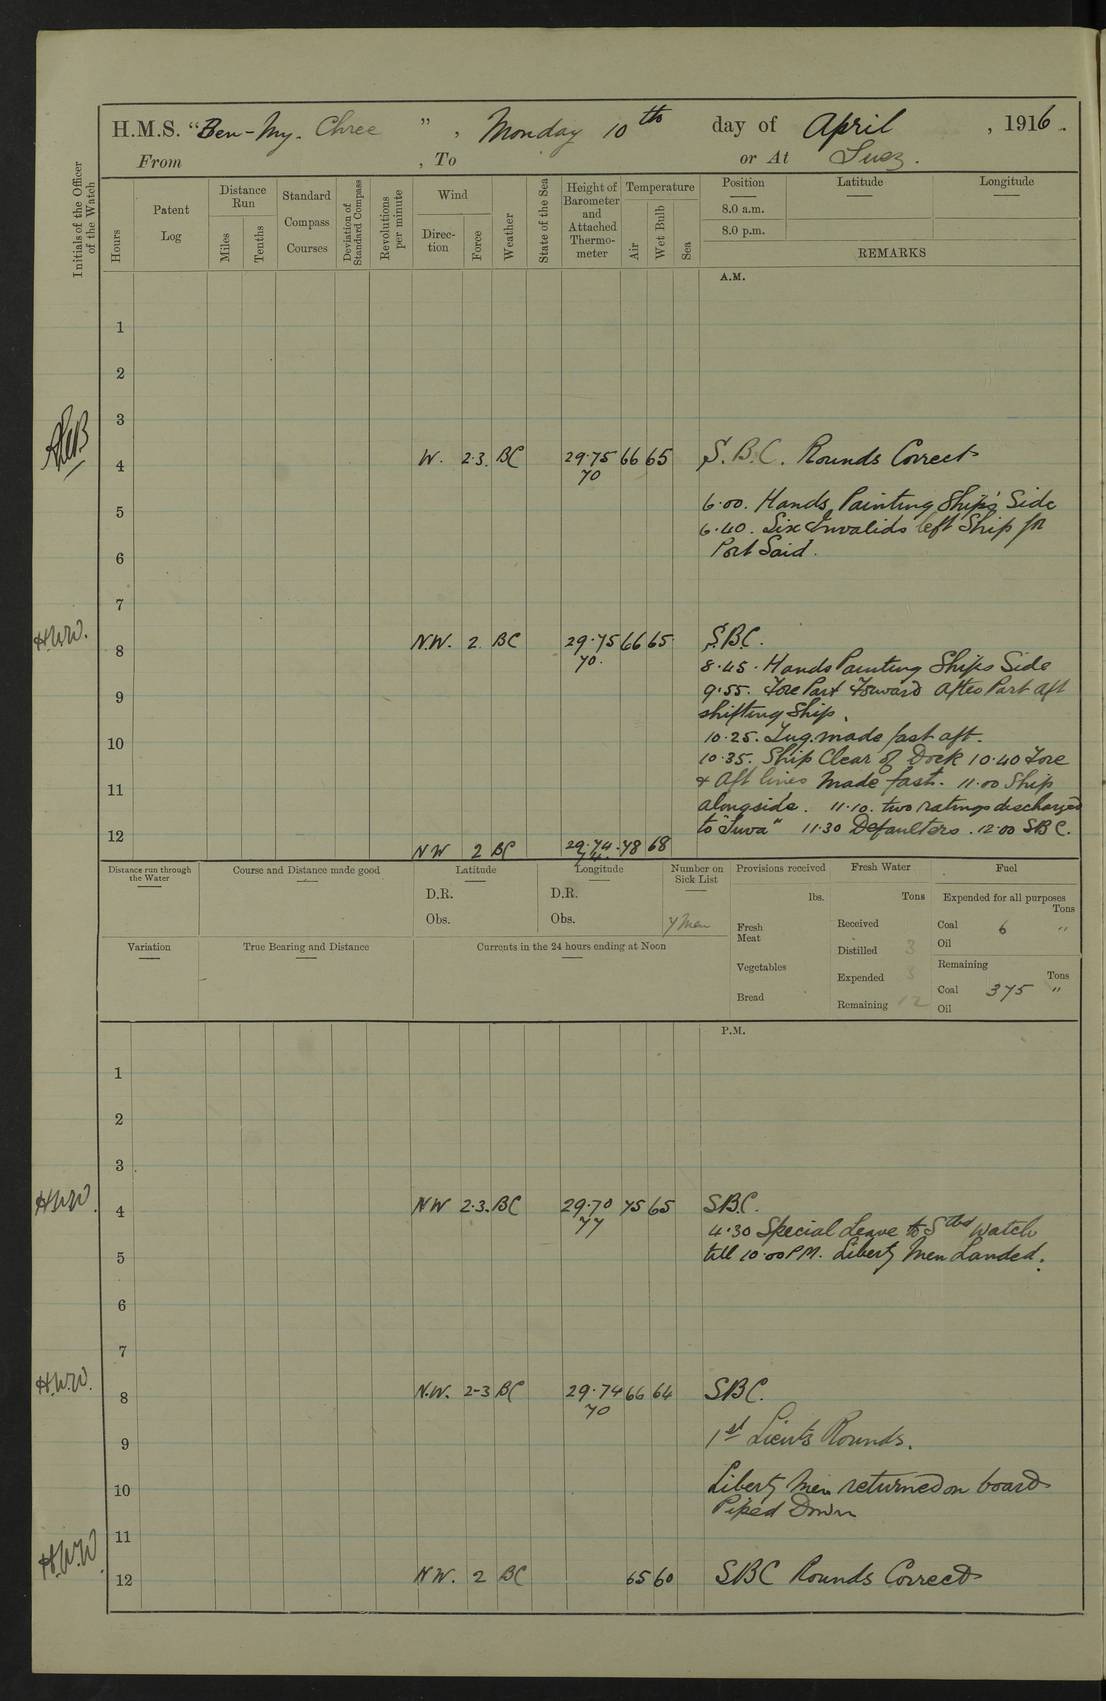 H.M.S. "Ben-My-Chree", Monday 10th day of April, 1916.
From , To or At Suez.
Initials of the Officer of the Watch
Hours
Patent Log
Distance Run
Miles
Tenths
Standard Compass Courses
Deviation of Standard Compass
Revolutions per minute
Wind
Direction
Force
Weather
State of the Sea
Height of Barometer and Attached Thermometer
Temperature
Air
Wet Bulb
Sea
Position
8.0 a.m.
8.0 p.m.
Latitude
Longitude
REMARKS
A.M.
1
2
3
4 W. 2-3 BC 29.75 66 65 S.B.C. Rounds Correct
70
5 6.00. Hands Painting Ship's Side
6.40. Six Invalids left Ship for
6 Port Said.
7
H.W.W. 8 N.W. 2 BC 29.75 66 65 S.B.C.
70.
8.45. Hands Painting Ships Side
9 9.55. Fore Part Forward After Part aft
shifting Ship.
10 10.25. Tug made fast aft.
10.35. Ship Clear of Dock 10.40 Fore
11 & Aft lines made fast. 11.00 Ship
alongside. 11.10. two ratings discharged
12 to "Suva" 11.30 Defaulters. 12.00 SBC.
NW 2 BC 29.74 78 68
74.
Distance run through the Water
Course and Distance made good
Latitude
D.R.
Obs.
Longitude
D.R.
Obs.
Number on Sick List
7 Men
Provisions received
lbs.
Fresh Meat
Vegetables
Bread
Fresh Water
Tons
Received
Distilled 3
Expended 3
Remaining 12
Fuel
Expended for all purposes
Tons
Coal 6 "
Oil
Remaining
Tons
Coal 375 "
Oil
Variation
True Bearing and Distance
Currents in the 24 hours ending at Noon
P.M.
1
2
3
H.W.W. 4 NW 2-3. BC 29.70 75 65 SBC.
77
4.30 Special Leave to Stbd Watch
5 till 10.00 PM. Liberty Men Landed.
6
7
H.W.W. 8 N.W. 2-3 BC 29.74 66 64 SBC.
70
9 1st Lieuts Rounds.
10 Liberty Men returned on board
Piped Down
11
H.W.W. 12 NW. 2 BC 65 60 SBC Rounds Correct